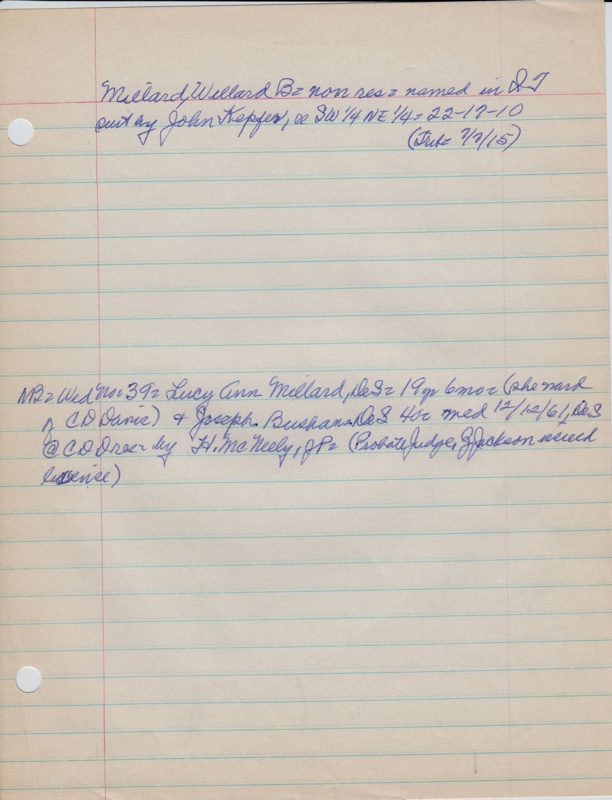 Millard, Willard B = non res = named in QT
suit by John Kepfer, SW 1/4 NE 1/4 = 22-17-10
(Trib = 7/7/15)
MB = Wed No = 39 = Lucy Ann Millard, DeS = 19 yr 6 mo = (she ward
of CD Davis) & Joseph Busham = DeS 40 = med 12/12/61, DeS
@ CD D res = by H. McNeely, JP = (Probate Judge, Jackson issued
license)